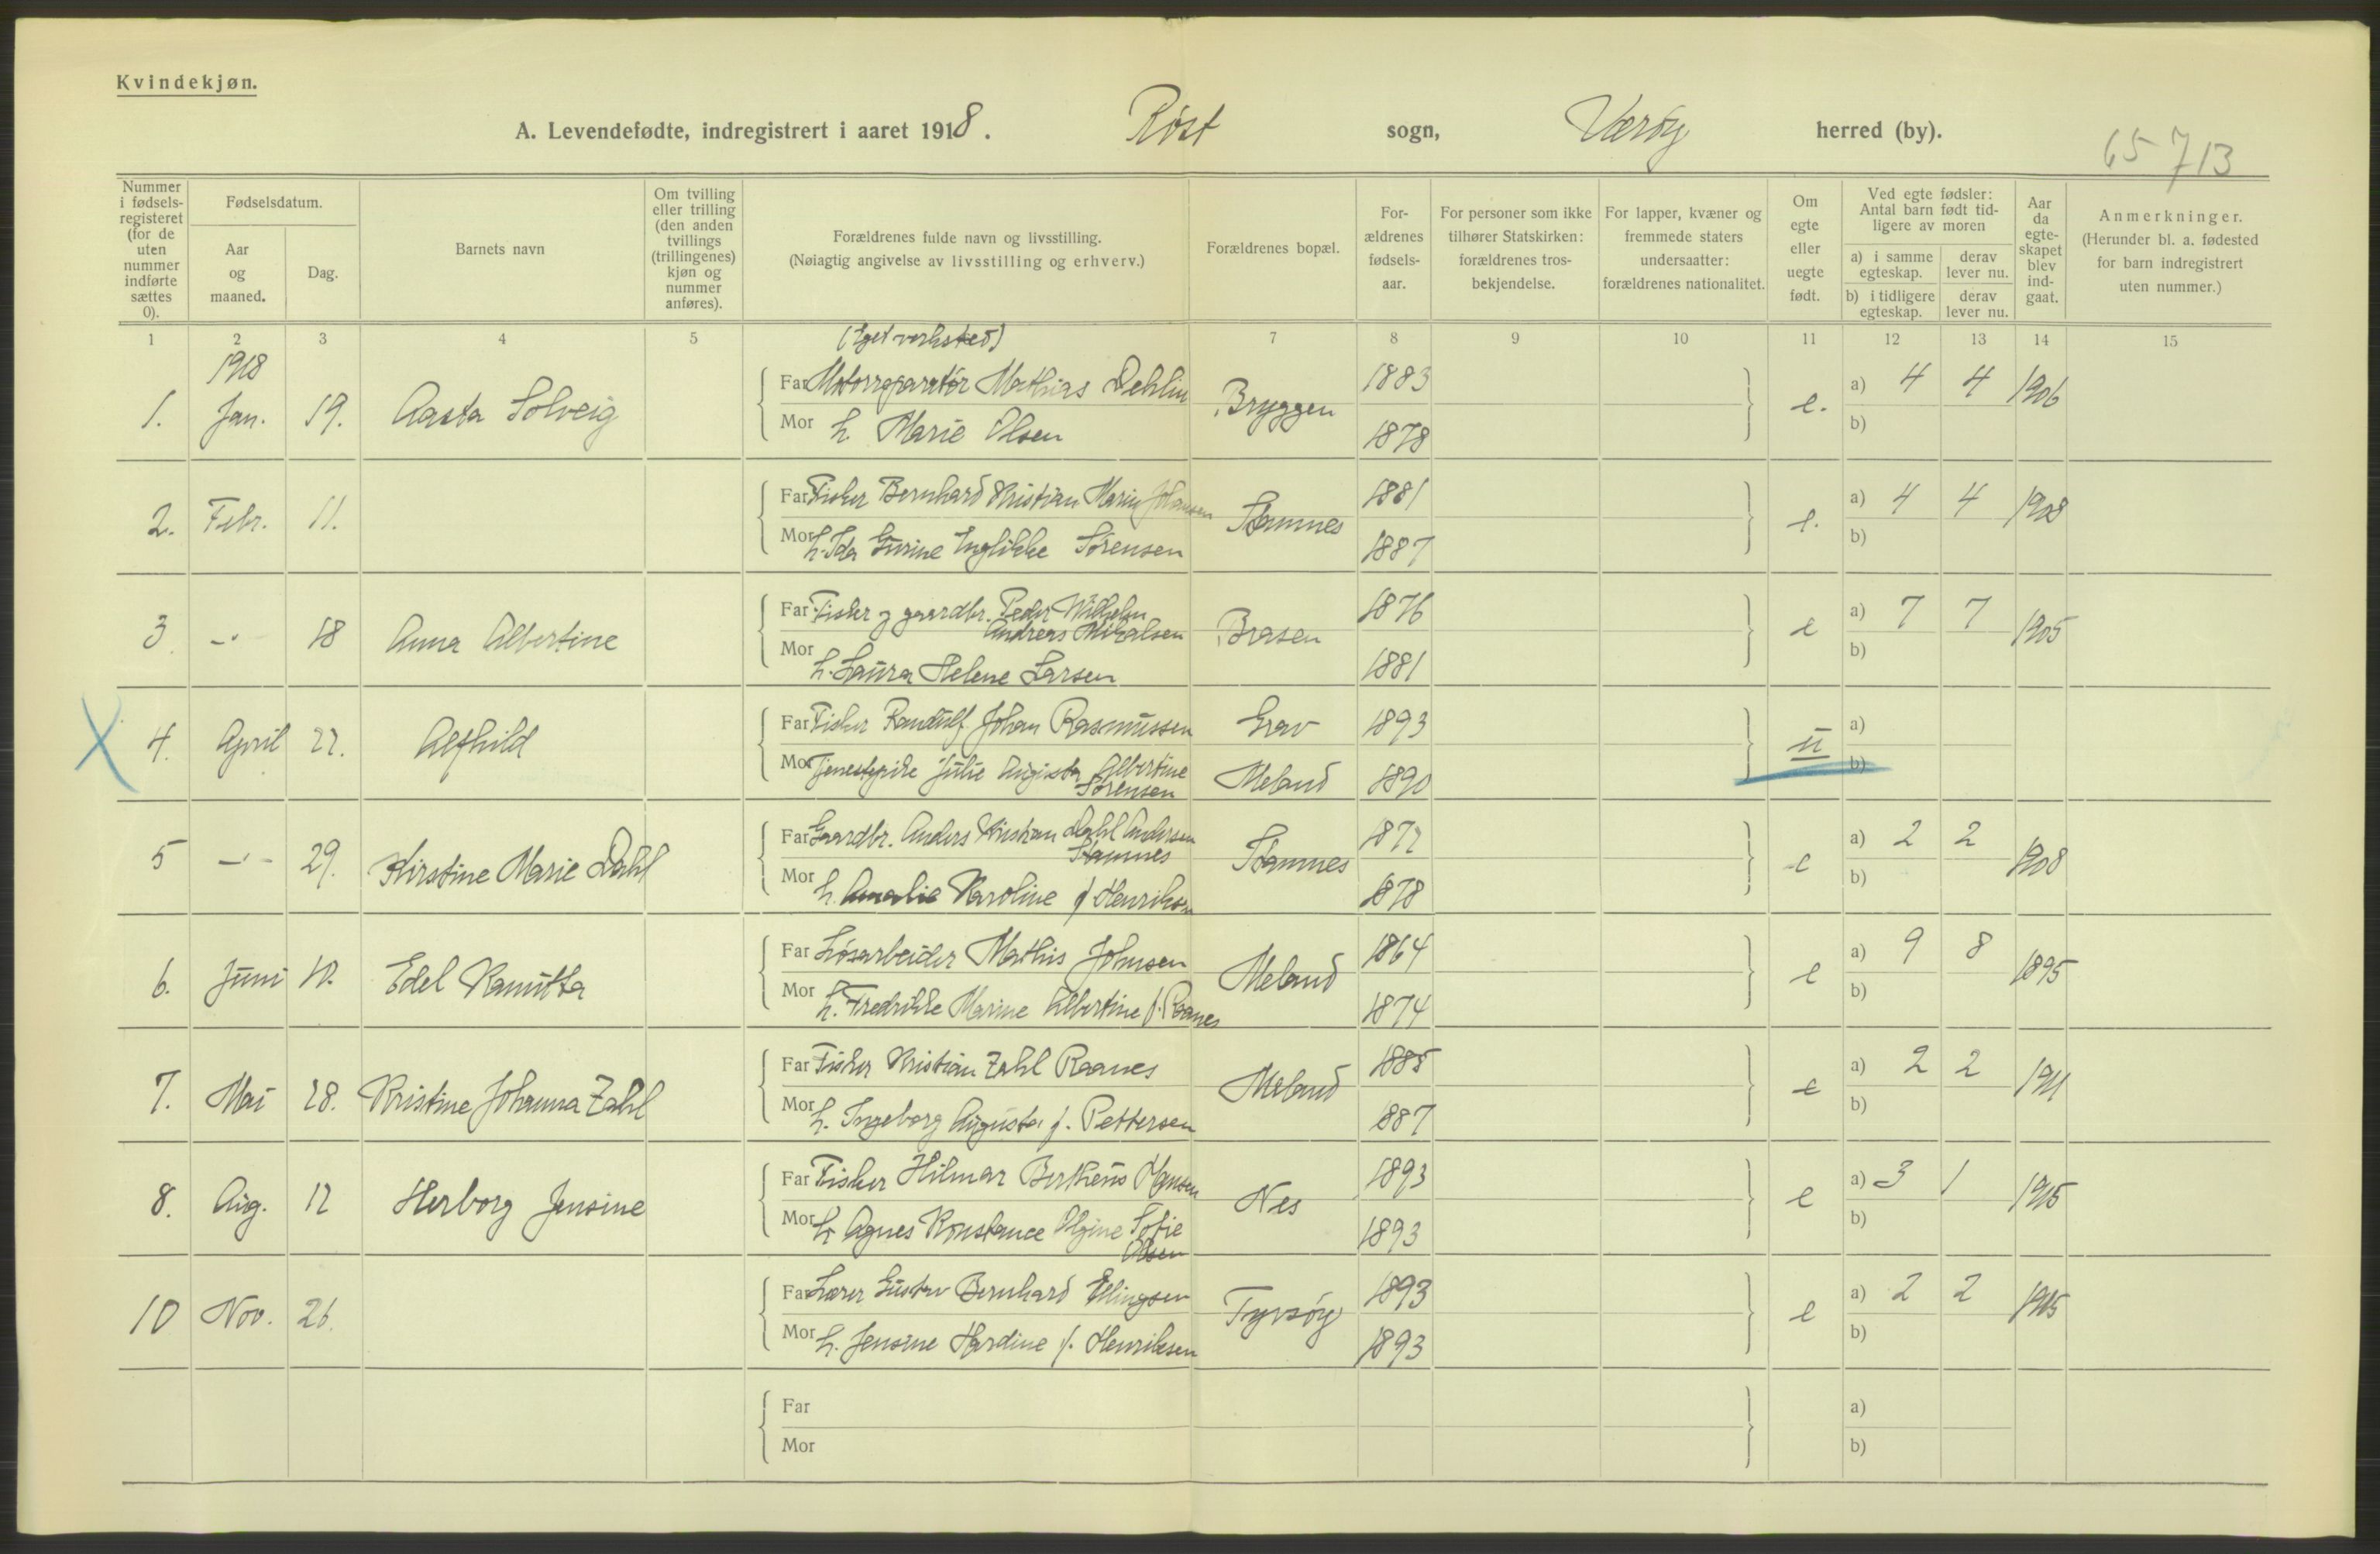 Kvindekjøn.
A. Levendefødte, indregistrert i aaret 1918. Røst sogn, Værøy herred (by).
65 713
Nummer i fødselsregisteret (for de uten nummer indførte sættes 0).
Fødselsdatum.
Aar og maaned.
Dag.
Barnets navn
Om tvilling eller trilling (den anden tvillings (trillingenes) kjøn og nummer anføres).
Forældrenes fulde navn og livsstilling.
(Nøiagtig angivelse av livsstilling og erhverv.)
Forældrenes bopæl.
Forældrenes fødselsaar.
For personer som ikke tilhører Statskirken: forældrenes trosbekjendelse.
For lapper, kvæner og fremmede staters undersaatter: forældrenes nationalitet.
Om egte eller uegte født.
Ved egte fødsler: Antal barn født tidligere av moren
a) i samme egteskap. derav lever nu.
b) i tidligere egteskap. derav lever nu.
Aar da egteskapet blev indgaat.
Anmerkninger.
(Herunder bl. a. fødested for barn indregistrert uten nummer.)
1 2 3 4 5 7 8 9 10 11 12 13 14 15
(Eget verksted)
1918
1. Jan. 19. Aasta Solveig Far Motorreparatør Mathias Dehlin Bryggen 1883 e. a) 4 4 1906
Mor h. Marie Olsen 1878 b)
2. Febr. 11. Far Fisker Bernhard Kristian Marin Johansen Stamnes 1881 e. a) 4 4 1908
Mor h. Ida Gurine Inglikke Sørensen 1887 b)
3 -"- 18 Anna Albertine Far Fisker og gaardbr. Peder Wilhelm Andreas Mikalsen Brasen 1876 e a) 7 7 1905
Mor h. Laura Helene Larsen 1881 b)
X 4. April 22. Alfhild Far Fisker Randulf Johan Rasmussen Grav 1893 u a)
Mor Tjenestepike Julie Augusta Albertine Sørensen Meland 1890 b)
5 -"- 29. Kirstine Marie Dahl Far Gaardbr. Anders Kristian Dahl Andersen Stamnes Stamnes 1872 e a) 2 2 1908
Mor h. Amalie Karoline f Henriksen 1878 b)
6. Juni 10. Edel Ranutta Far Løsarbeider Mathis Johnsen Meland 1864 e a) 9 8 1895
Mor h. Fredrikke Marine Albertine f. Raanes 1874 b)
7. Mai 28. Kristine Johanna Zahl Far Fisker Kristian Zahl Raanes Meland 1885 e a) 2 2 1911
Mor h. Ingeborg Augusta f. Pettersen 1887 b)
8. Aug. 12 Herborg Jensine Far Fisker Hilmar Bertheus Hansen Nes 1893 e a) 3 1 1915
Mor h. Agnes Konstance Olgine Sofie Olsen 1893 b)
10 Nov. 26. Far Lærer Gustav Bernhard Ellingsen Tyvsøy 1893 e a) 2 2 1915
Mor h. Jensine Hardine f. Henriksen 1893 b)
Far a)
Mor b)